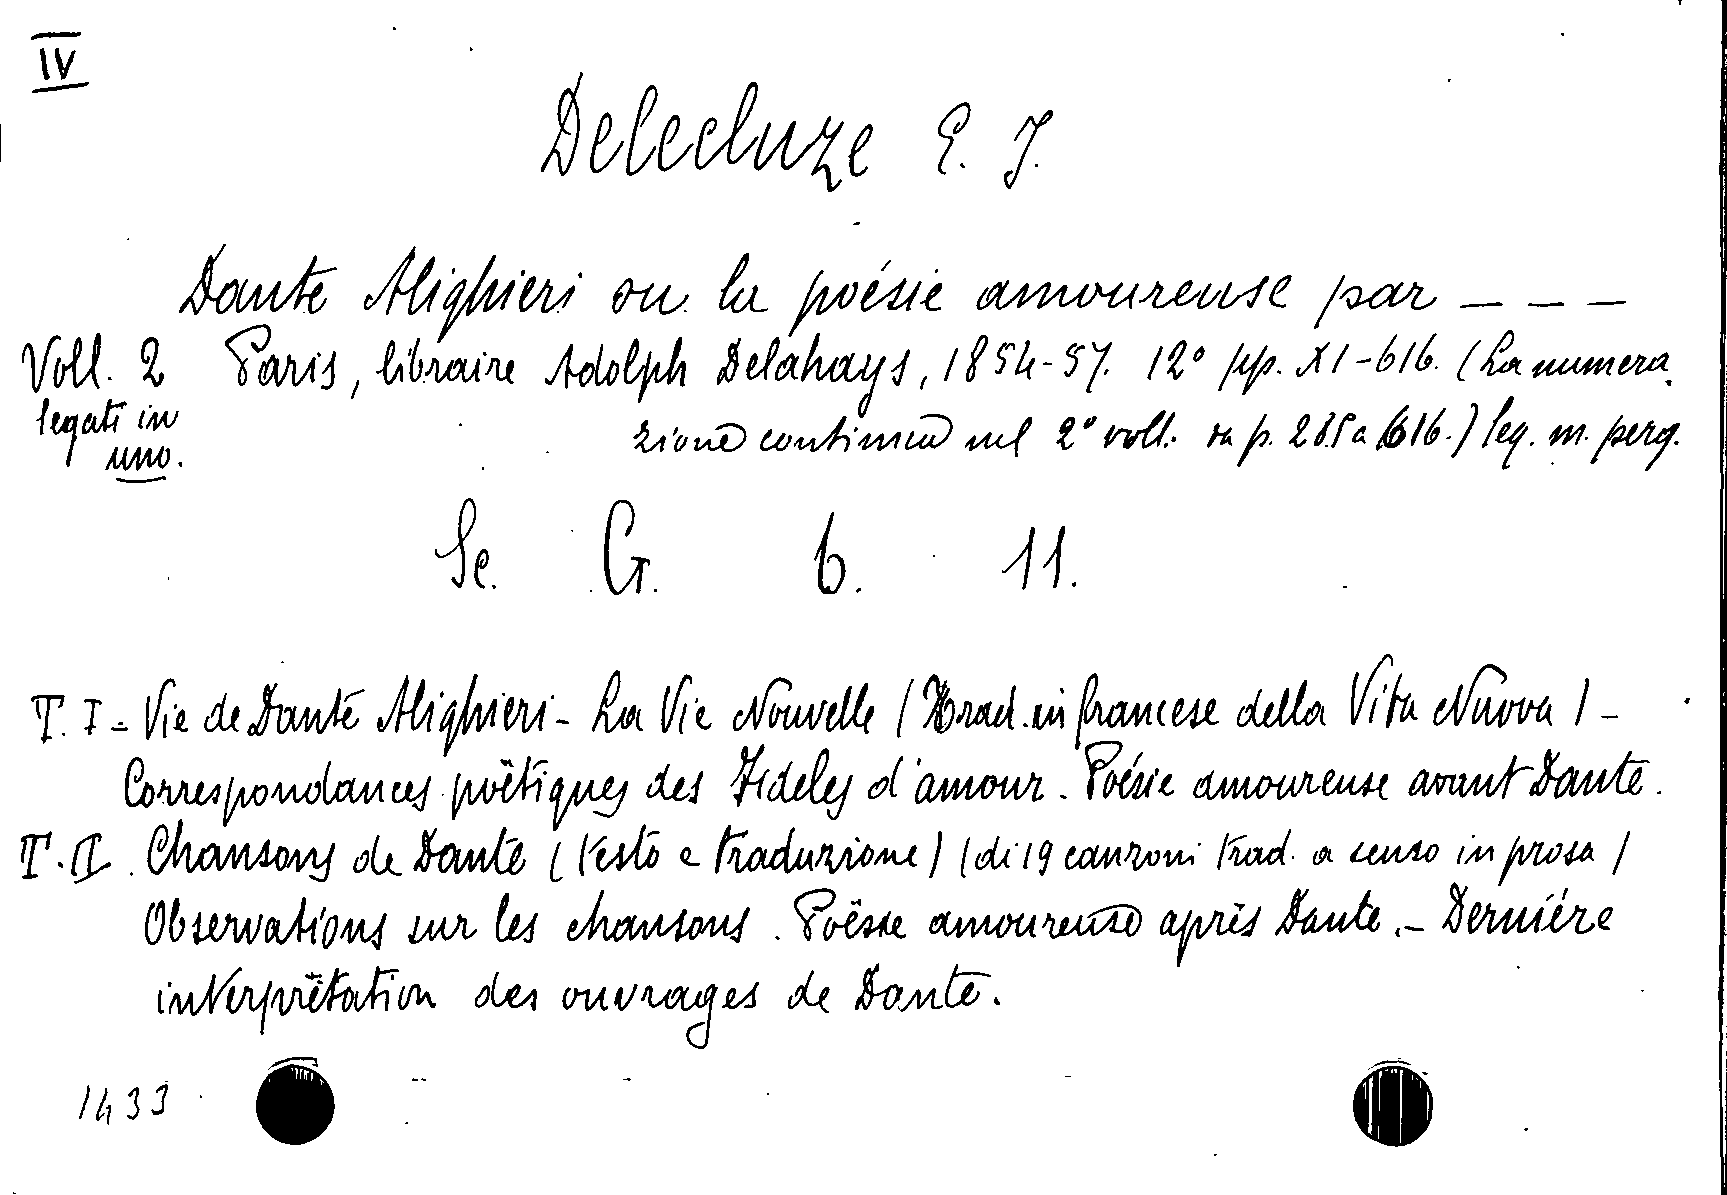 IV
Delecluze E. J.
Dante Alighieri ou la poésie amoureuse par _ _ _
Voll. 2 Paris, libraire Adolph Delahays, 1854-57. 12° pp. XI-616. (La numera
legati in zione continua nel 2° voll. da p. a 616.) leg. m. perg.
uno.
Sc. G. 6. 11.
T. I = Vie de Dante Alighieri - La Vie Nouvelle (Trad. in francese della Vita Nuova) -
Correspondances poëtiques des Fideles d'amour. Poésie amoureuse avant Dante.
T. II. Chansons de Dante (testo e traduzione) (di 19 canzoni trad. a senso in prosa)
Observations sur les chansons. Poësie amoureuse après Dante. - Derniére
interprëtation des ouvrages de Dante.
1433